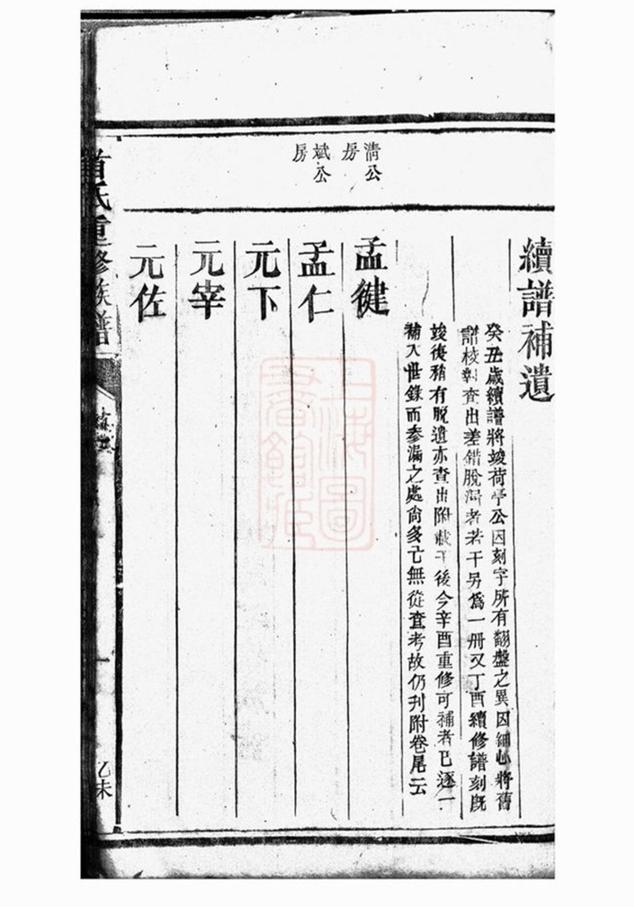 清公
房
斌公
房
續譜補遺
癸丑歲續譜將竣荷亭公因刻字所有翻盤之異因細心將舊
譜校對查出差錯脫漏者若干另為一冊又丁酉續修譜刻既
竣後稍有脫遺亦查出附載于後今辛酉重修可補者已逐一
補入世錄而參漏之處尚多亡無從查考故仍刋附卷尾云
孟健
孟仁
元下
元宰
元佐
氏重修族譜
一
乙未